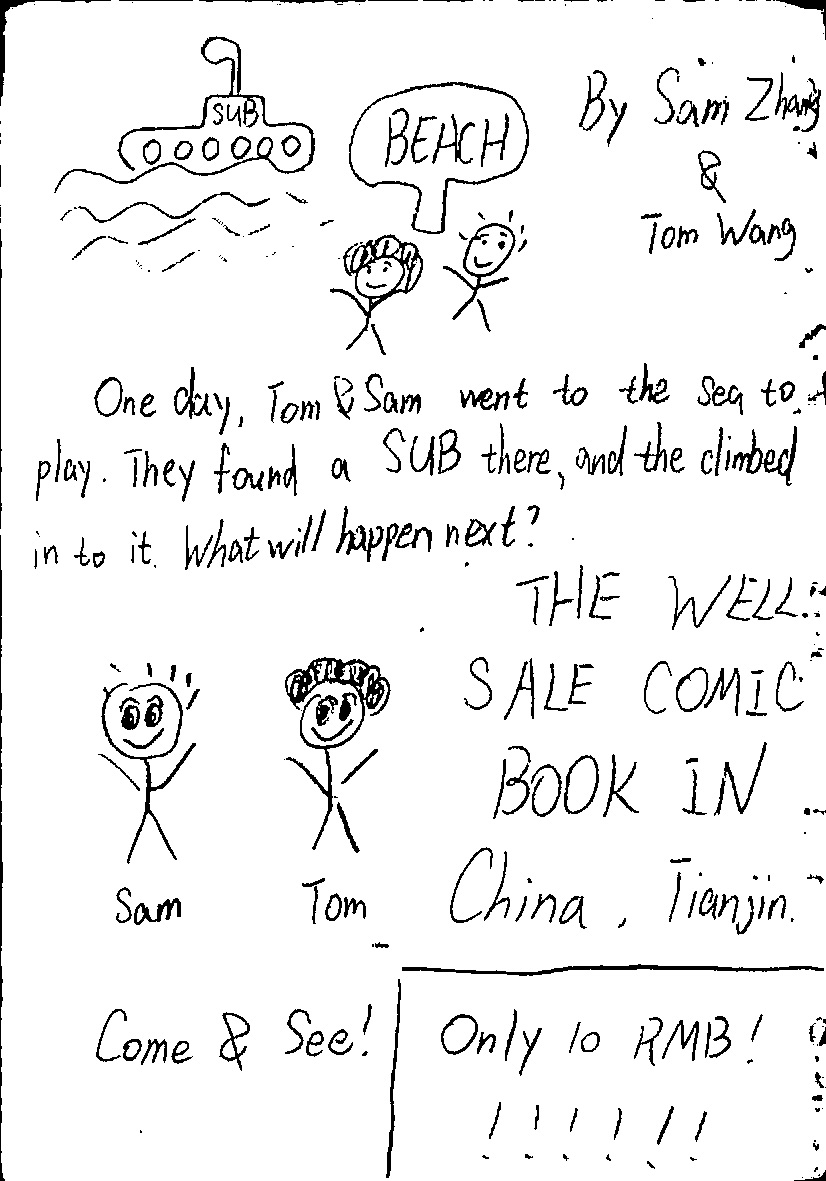 SUB
BEACH
By Sam Zhang
&
Tom Wang
One day, Tom & Sam went to the sea to
play. They found a SUB there, and the climbed
in to it. What will happen next?
THE WELL
SALE COMIC
BOOK IN
China, Tianjin.
Sam
Tom
Come & See!
Only 10 RMB!
! ! ! ! ! !